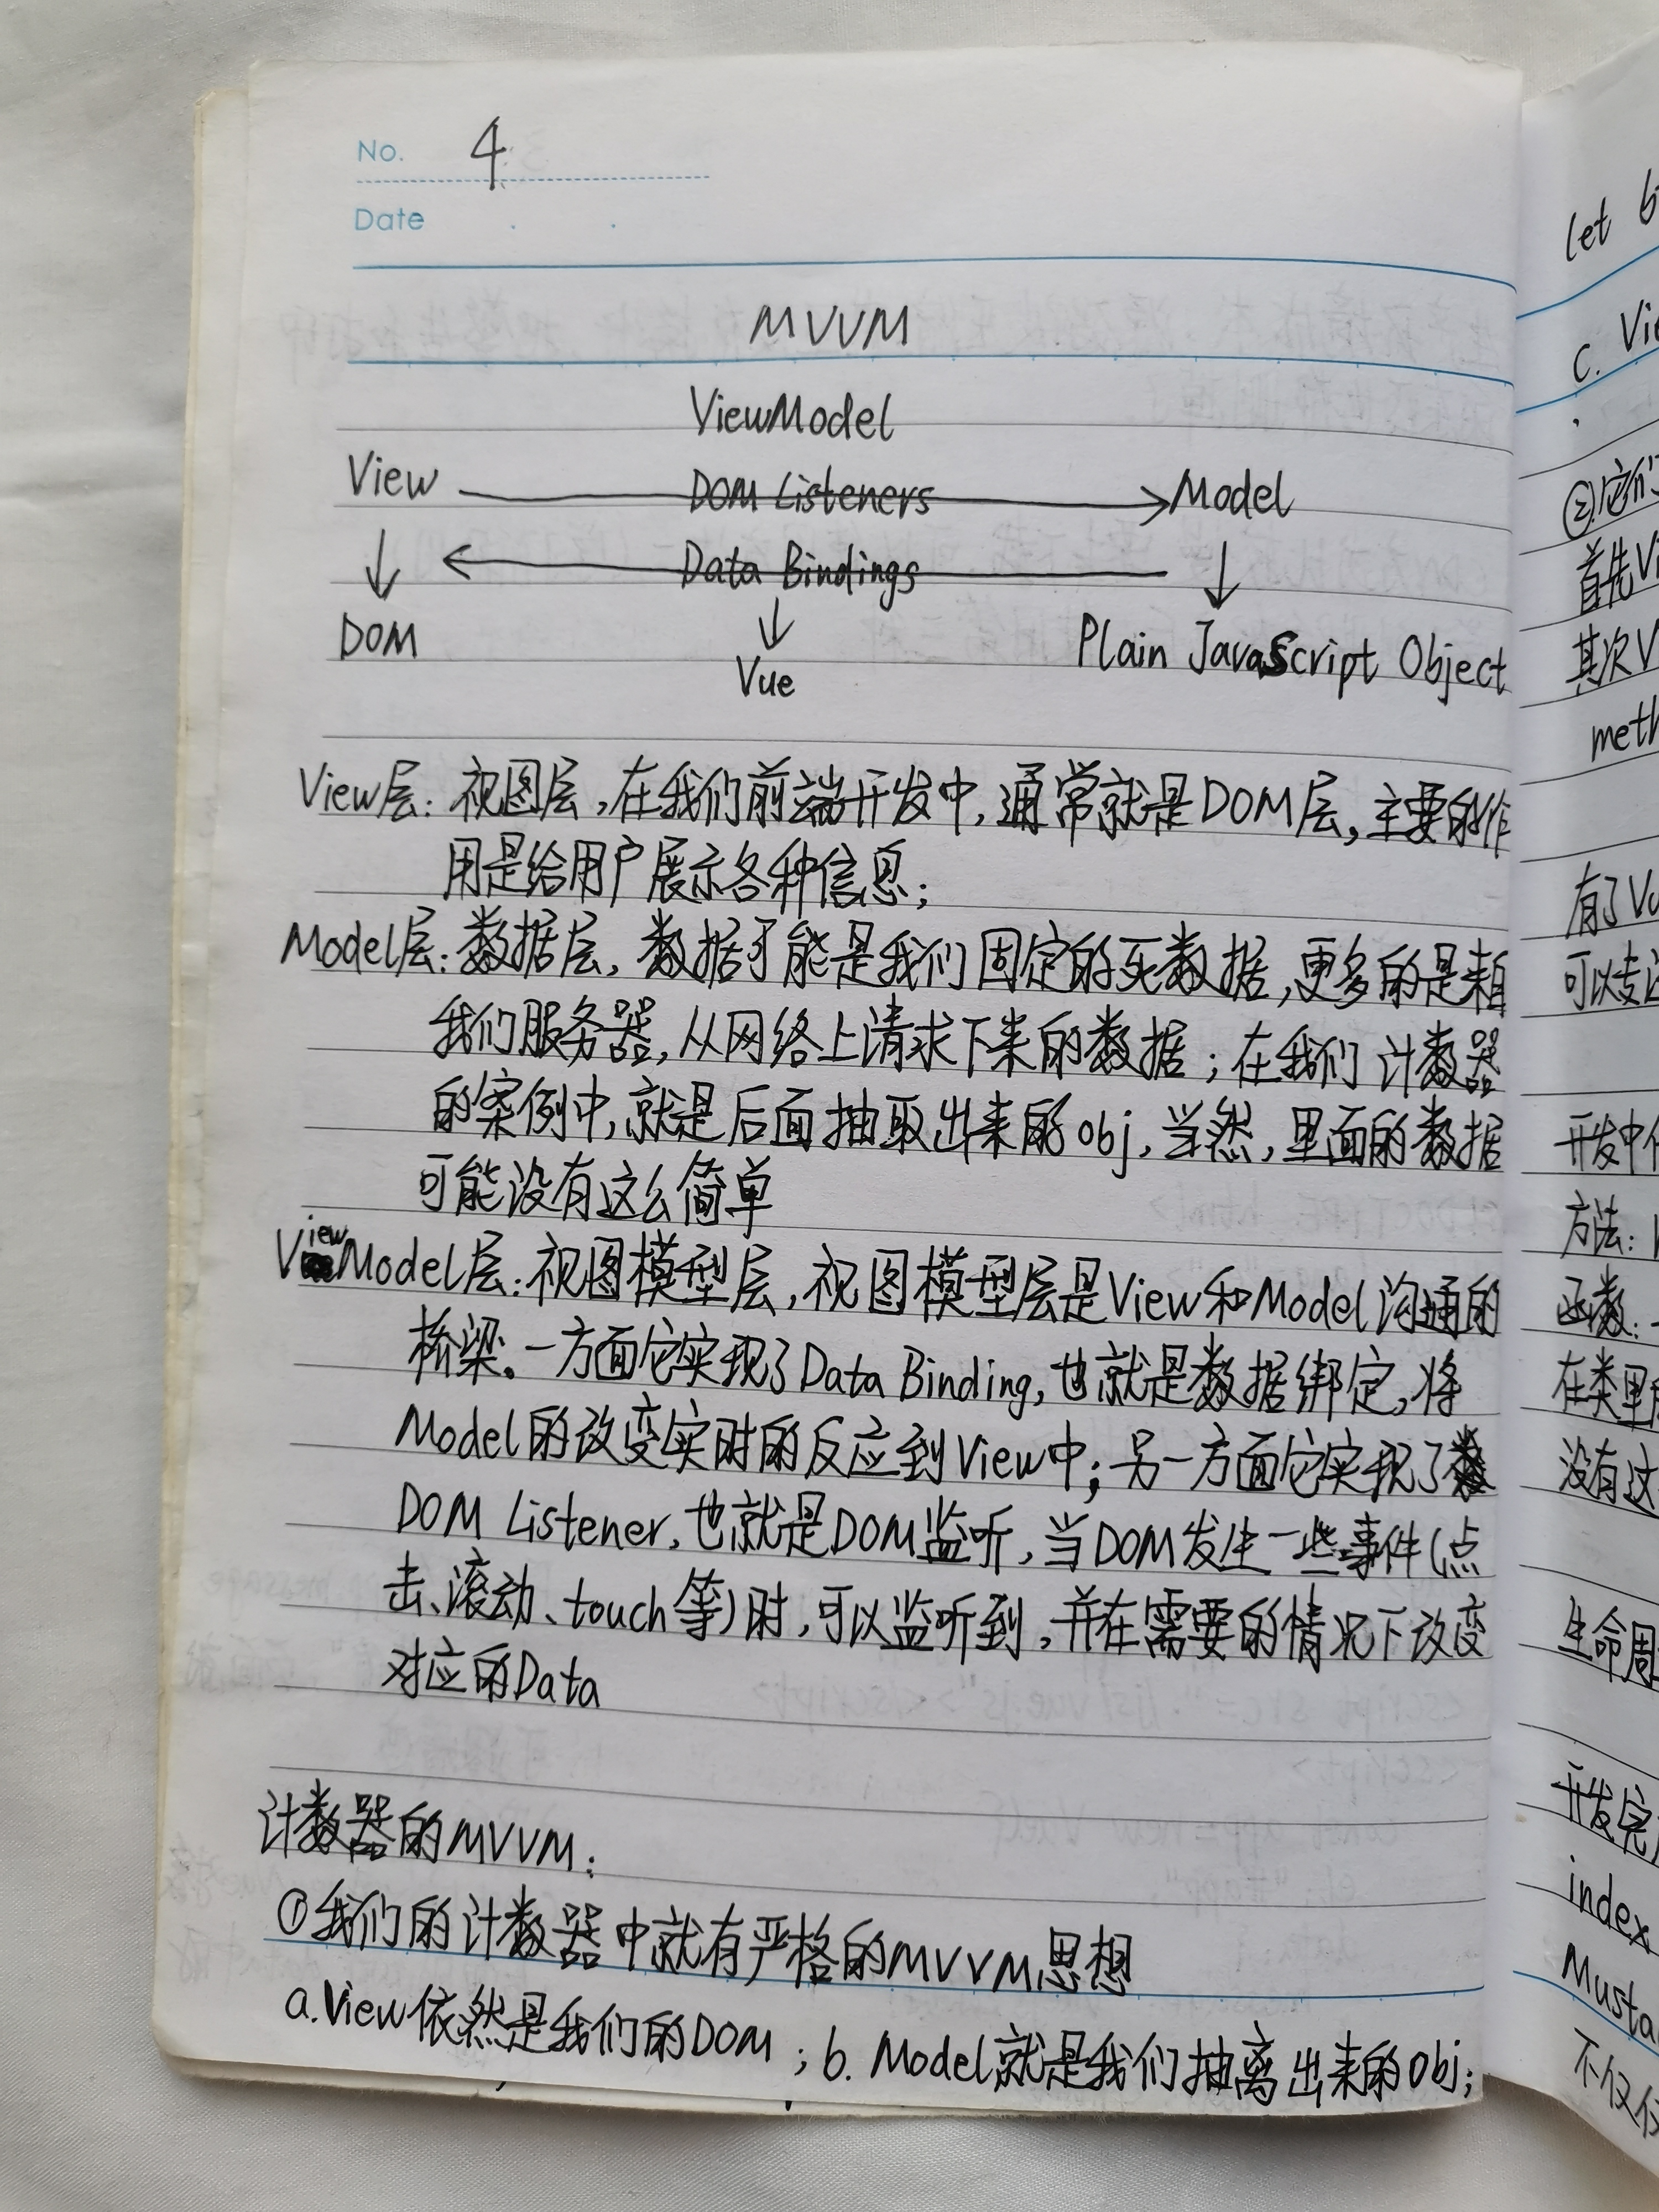 No. 4
Date
MVVM
ViewModel
View DOM Listeners Model
Data Bindings
DOM Vue Plain JavaScript Object
View层：视图层，在我们前端开发中，通常就是DOM层，主要的作
用是给用户展示各种信息；
Model层：数据层，数据可能是我们固定的死数据，更多的是来自
我们服务器，从网络上请求下来的数据；在我们计数器
的案例中，就是后面抽取出来的obj，当然，里面的数据
可能没有这么简单
ViewModel层：视图模型层，视图模型层是View和Model沟通的
桥梁。一方面它实现了Data Binding，也就是数据绑定，将
Model的改变实时的反应到View中；另一方面它实现了
DOM Listener，也就是DOM监听，当DOM发生一些事件（点
击、滚动、touch等）时，可以监听到，并在需要的情况下改变
对应的Data
计数器的MVVM：
①我们的计数器中就有严格的MVVM思想
a.View依然是我们的DOM；b. Model就是我们抽离出来的obj；
let
c.
②它们
首先
其次V
meth
有了Vu
可以专
开发中
方法：
函数：
在类里
没有这
生命周
开发完
index
Musta
不仅仅